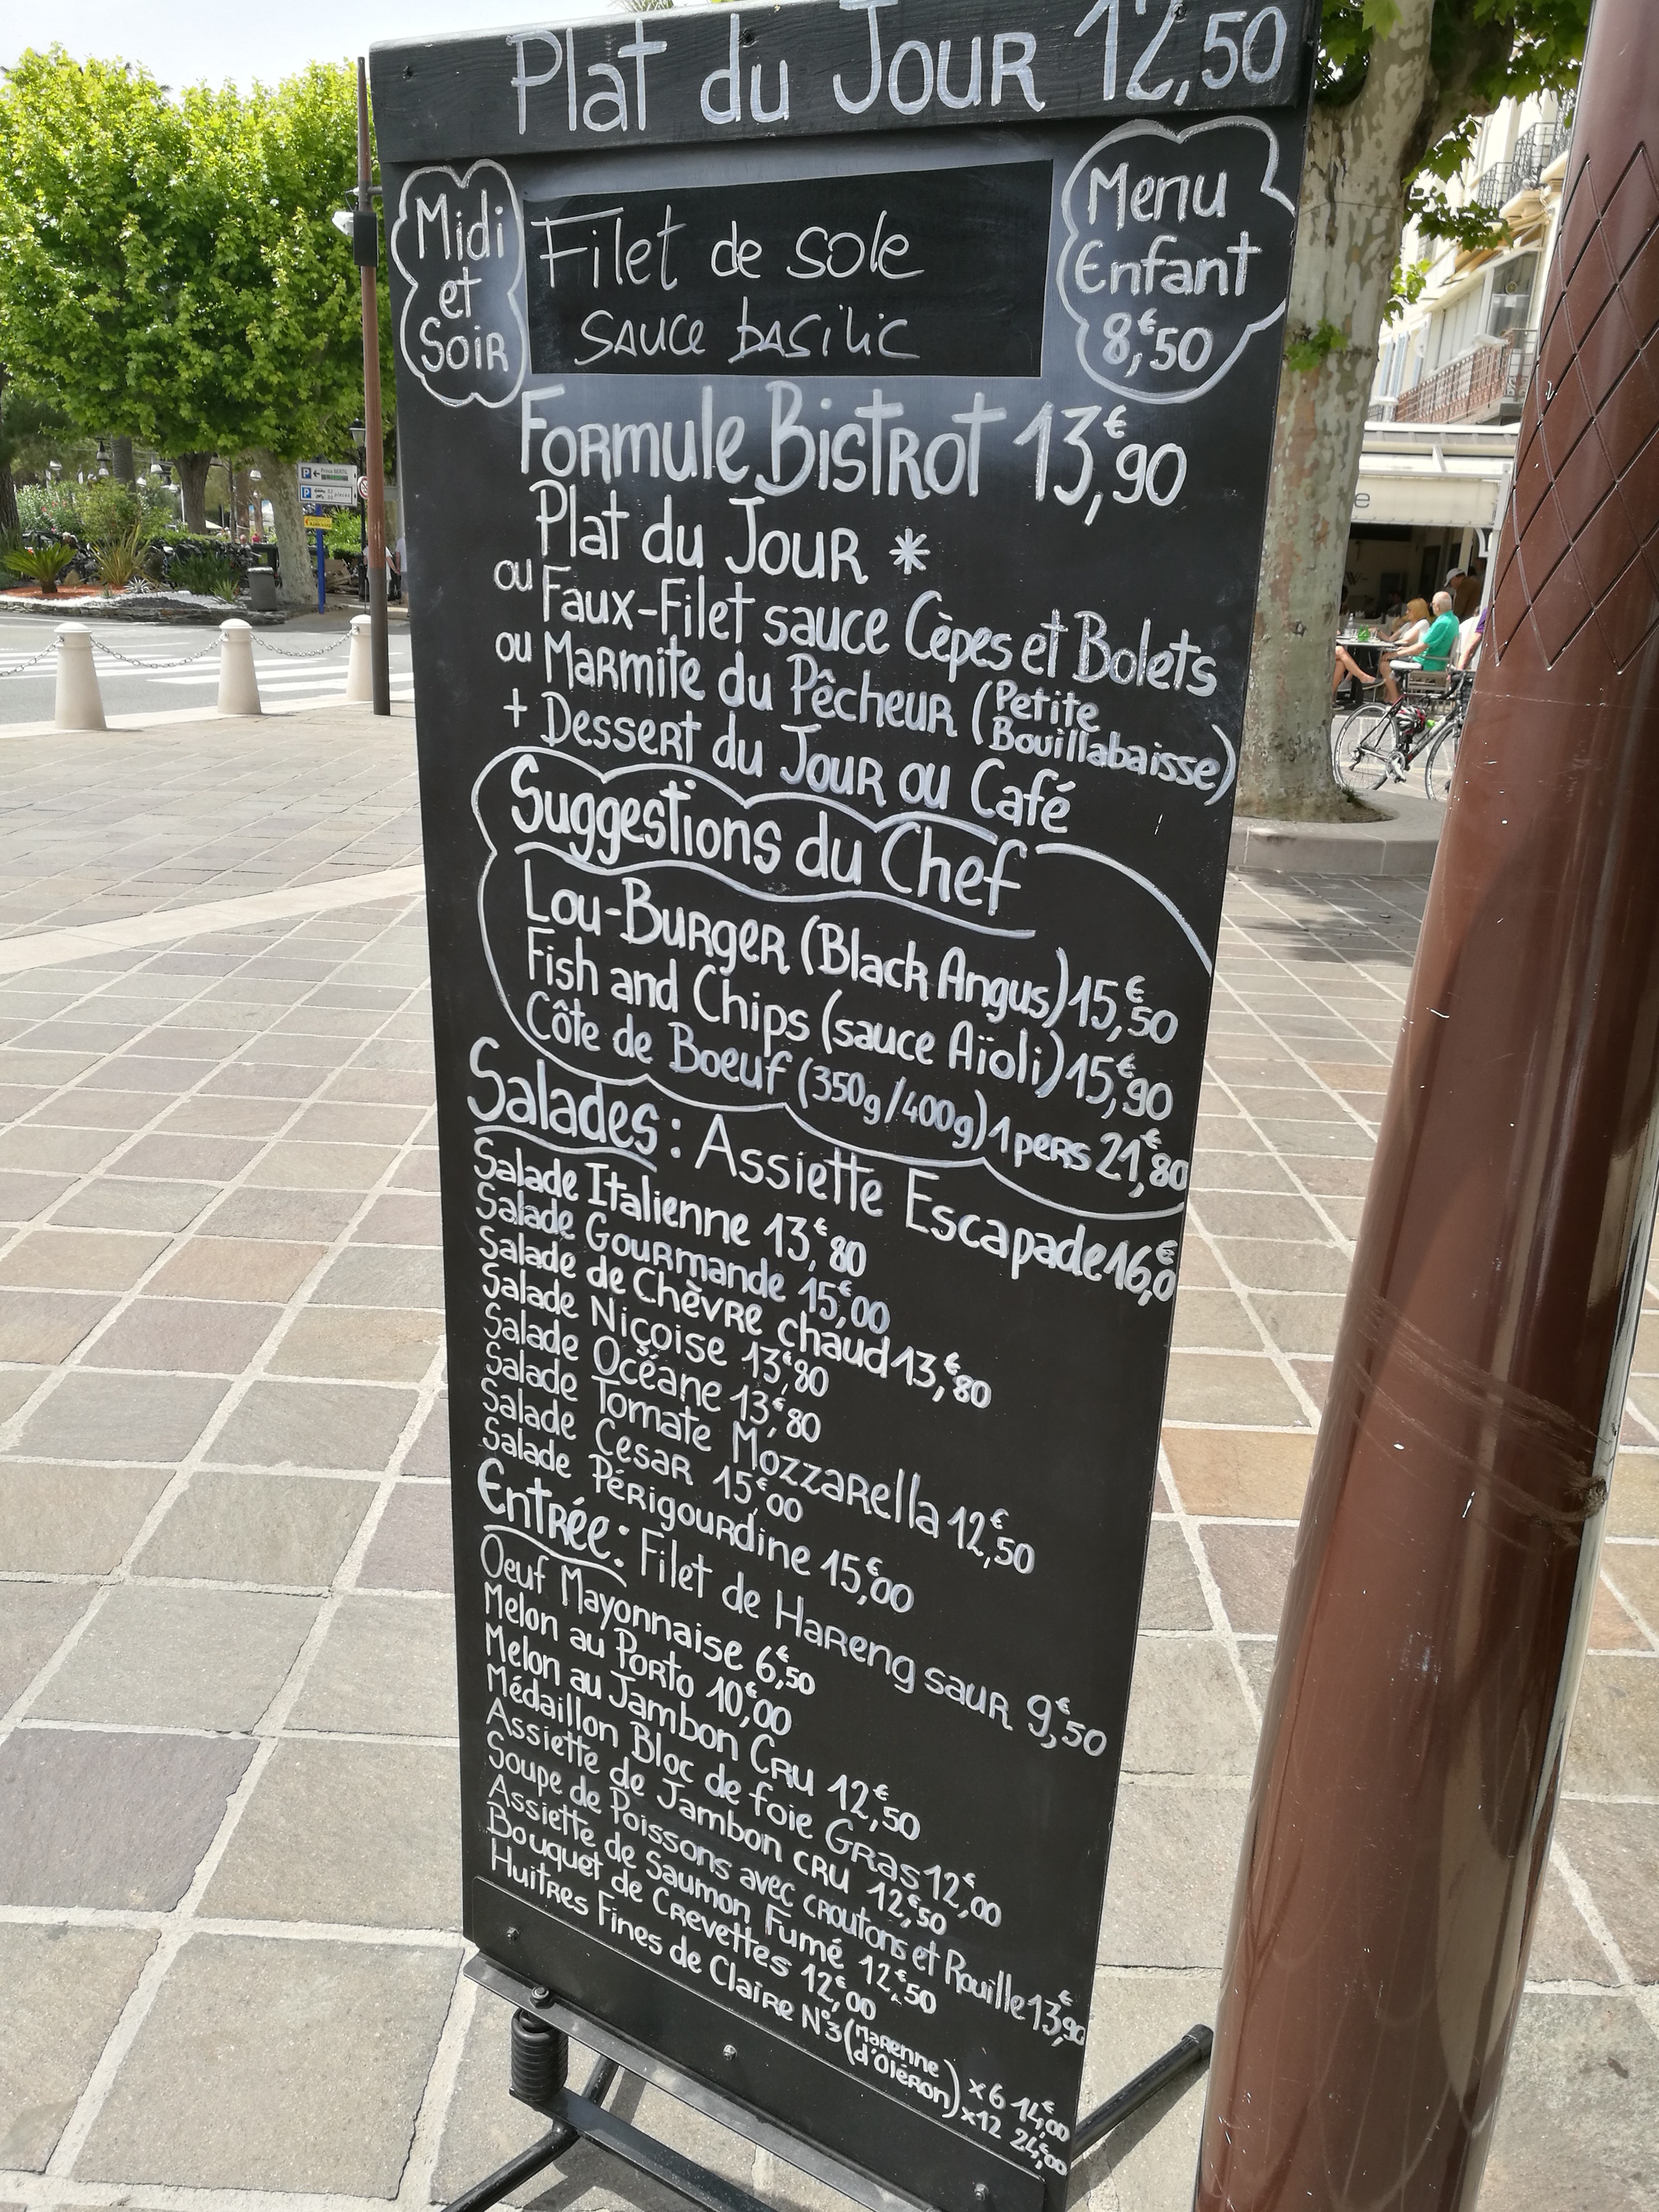 Plat du Jour 12,50
Midi
et
Soir
Filet de sole
sauce basilic
Menu
Enfant
8,€50
Formule Bistrot 13,€90
Plat du Jour *
ou Faux-Filet sauce Cèpes et Bolets
ou Marmite du Pêcheur (Petite Bouillabaisse)
+ Dessert du Jour ou Café
Suggestions du Chef
Lou-Burger (Black Angus) 15,€50
Fish and Chips (sauce Aïoli) 15,€90
Côte de Boeuf (350g/400g) 1 pers 21,€80
Salades : Assiette Escapade 16,€0
Salade Italienne 13,€80
Salade Gourmande 15,€00
Salade de Chèvre chaud 13,€80
Salade Niçoise 13,€80
Salade Océane 13,€80
Salade Tomate Mozzarella 12,€50
Salade Cesar 15,€00
Salade Périgourdine 15,€00
Entrée : Filet de Hareng saur 9,€50
Oeuf Mayonnaise 6,€50
Melon au Porto 10,€00
Melon au Jambon Cru 12,€50
Médaillon Bloc de foie Gras 12,€00
Assiette de Jambon cru 12,€50
Soupe de Poissons avec croutons et Rouille 13,€90
Assiette de Saumon Fumé 12,€50
Bouquet de Crevettes 12,€00
Huitres Fines de Claire N°3 (Marenne d'Oléron) x6 14,€00
x12 24,€00